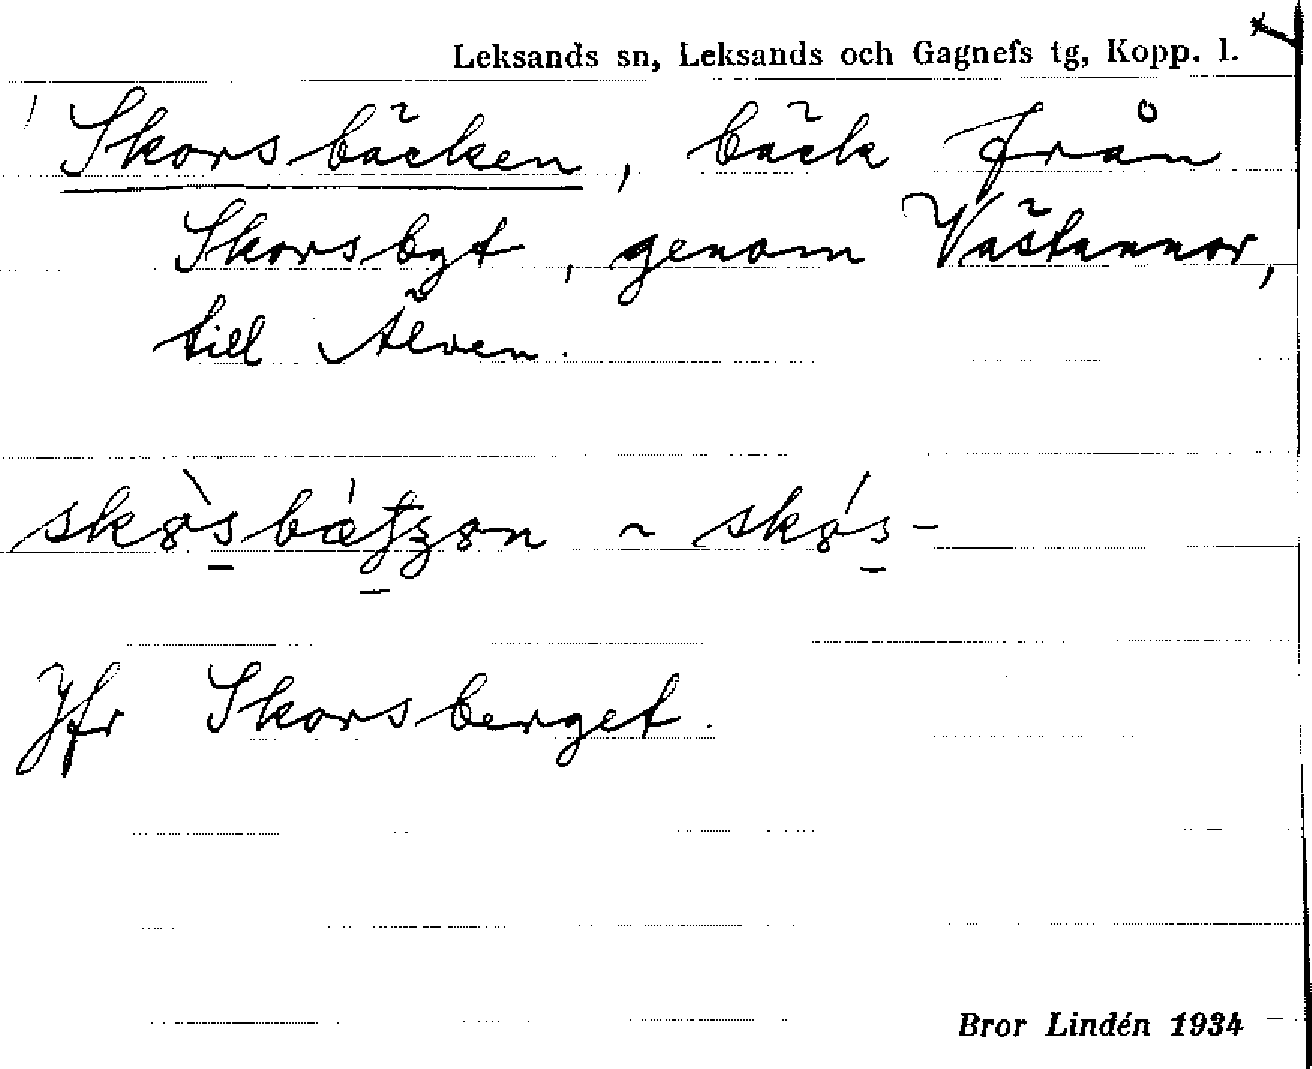 Leksands sn, Leksands och Gagnefs tg, Kopp. l.
Skorsbäcken, bäck från
Skorsbyt, genom Västannor,
till Älven.
Jfr Skorsberget.
Bror Lindén 1934